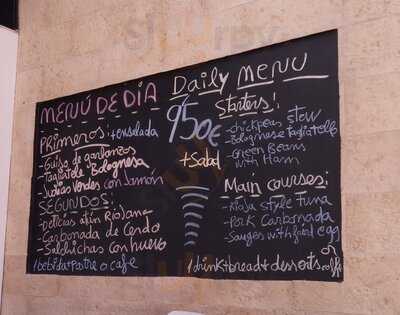 MENÚ DE DIA
Primeros: +ensalada
-Guiso de garbanzos
-Tagliatele Bolognesa
-Judias Verdes con Jamon
SEGUNDOS:
-Delicias atún Riojana
-Carbonada de Cerdo
-Salchichas con huevo
1bebida+postre o cafe
Daily MENU
950€
+Salad
Starters:
-chickpeas stew
-Bolognese tagliatelle
-Green Beans
with Ham
Main courses:
-Rioja Style Tuna
-Pork Carbonada
-Sauges with fried egg
1drink+bread+desserts